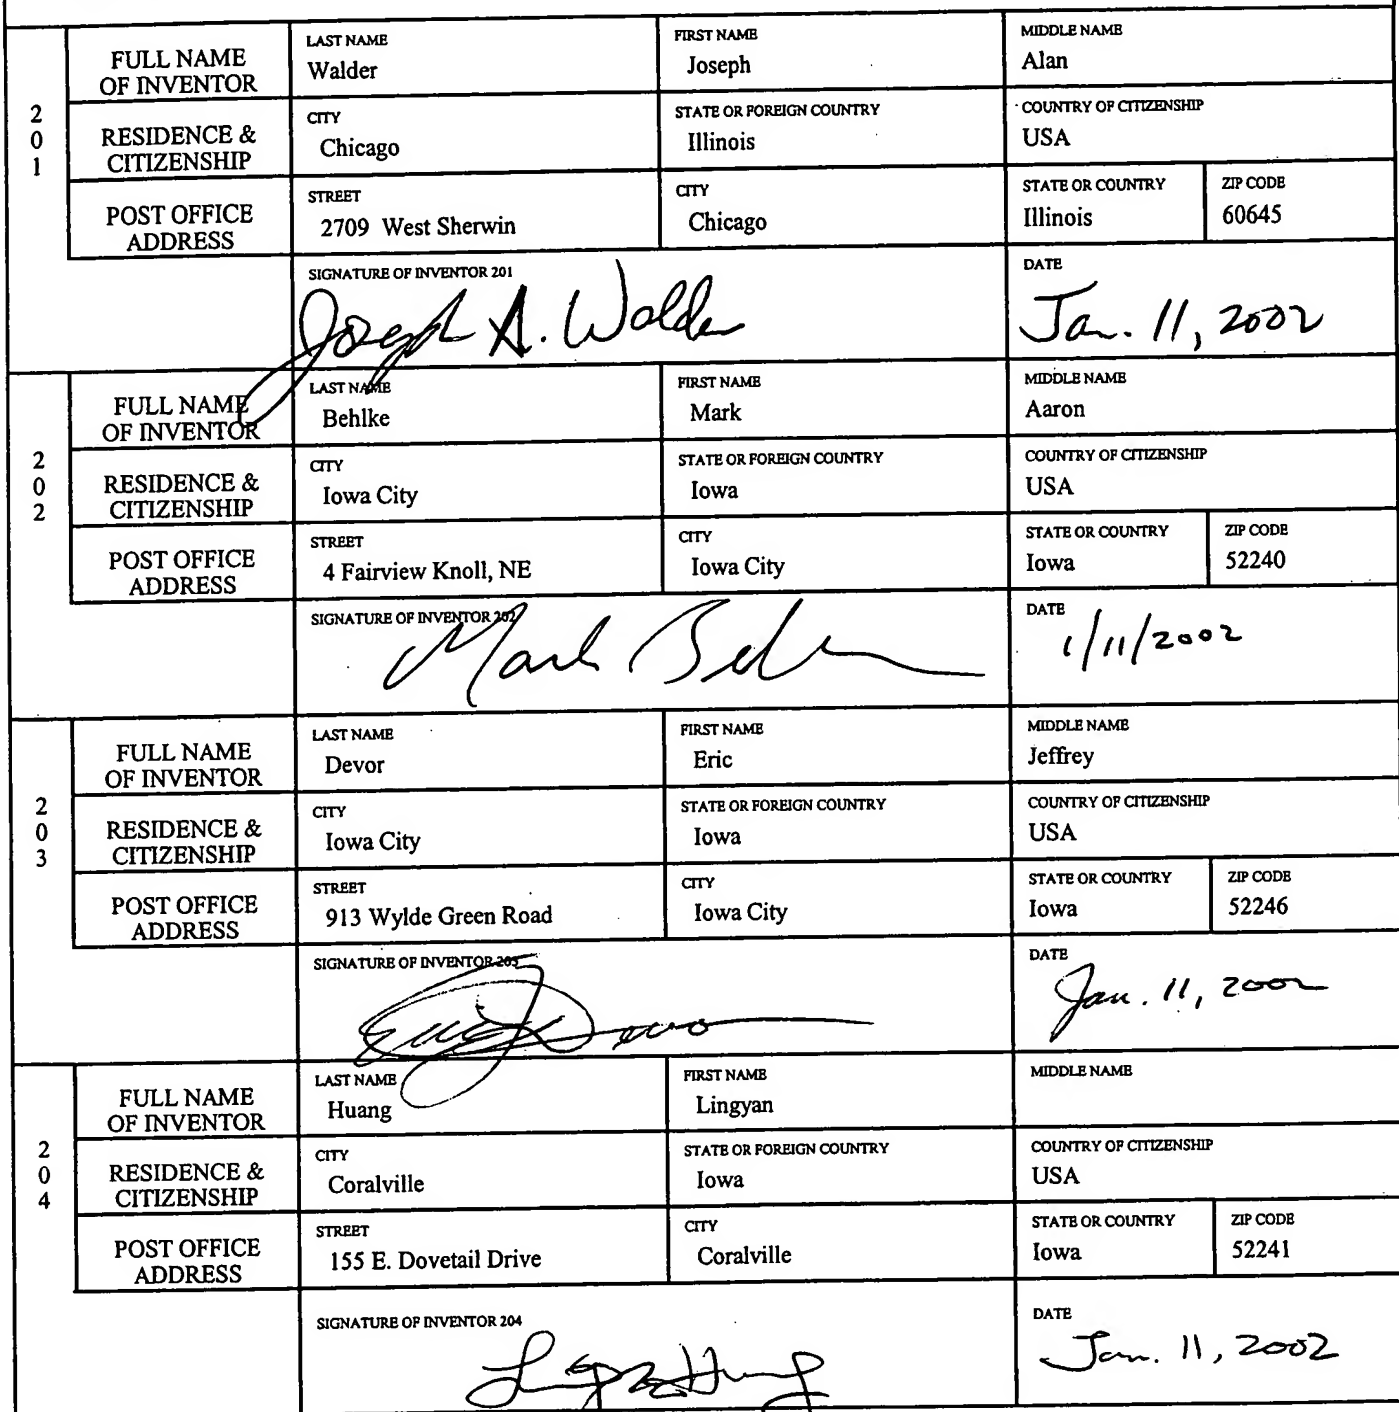 201
FULL NAME OF INVENTOR
LAST NAME
Walder
FIRST NAME
Joseph
MIDDLE NAME
Alan
RESIDENCE & CITIZENSHIP
CITY
Chicago
STATE OR FOREIGN COUNTRY
Illinois
COUNTRY OF CITIZENSHIP
USA
POST OFFICE ADDRESS
STREET
2709 West Sherwin
CITY
Chicago
STATE OR COUNTRY
Illinois
ZIP CODE
60645
SIGNATURE OF INVENTOR 201
Joseph A. Walder
DATE
Jan. 11, 2002
202
FULL NAME OF INVENTOR
LAST NAME
Behlke
FIRST NAME
Mark
MIDDLE NAME
Aaron
RESIDENCE & CITIZENSHIP
CITY
Iowa City
STATE OR FOREIGN COUNTRY
Iowa
COUNTRY OF CITIZENSHIP
USA
POST OFFICE ADDRESS
STREET
4 Fairview Knoll, NE
CITY
Iowa City
STATE OR COUNTRY
Iowa
ZIP CODE
52240
SIGNATURE OF INVENTOR 202
Mark
DATE
1/11/2002
203
FULL NAME OF INVENTOR
LAST NAME
Devor
FIRST NAME
Eric
MIDDLE NAME
Jeffrey
RESIDENCE & CITIZENSHIP
CITY
Iowa City
STATE OR FOREIGN COUNTRY
Iowa
COUNTRY OF CITIZENSHIP
USA
POST OFFICE ADDRESS
STREET
913 Wylde Green Road
CITY
Iowa City
STATE OR COUNTRY
Iowa
ZIP CODE
52246
SIGNATURE OF INVENTOR 203
DATE
Jan. 11, 2002
204
FULL NAME OF INVENTOR
LAST NAME
Huang
FIRST NAME
Lingyan
MIDDLE NAME
RESIDENCE & CITIZENSHIP
CITY
Coralville
STATE OR FOREIGN COUNTRY
Iowa
COUNTRY OF CITIZENSHIP
USA
POST OFFICE ADDRESS
STREET
155 E. Dovetail Drive
CITY
Coralville
STATE OR COUNTRY
Iowa
ZIP CODE
52241
SIGNATURE OF INVENTOR 204
DATE
Jan. 11, 2002